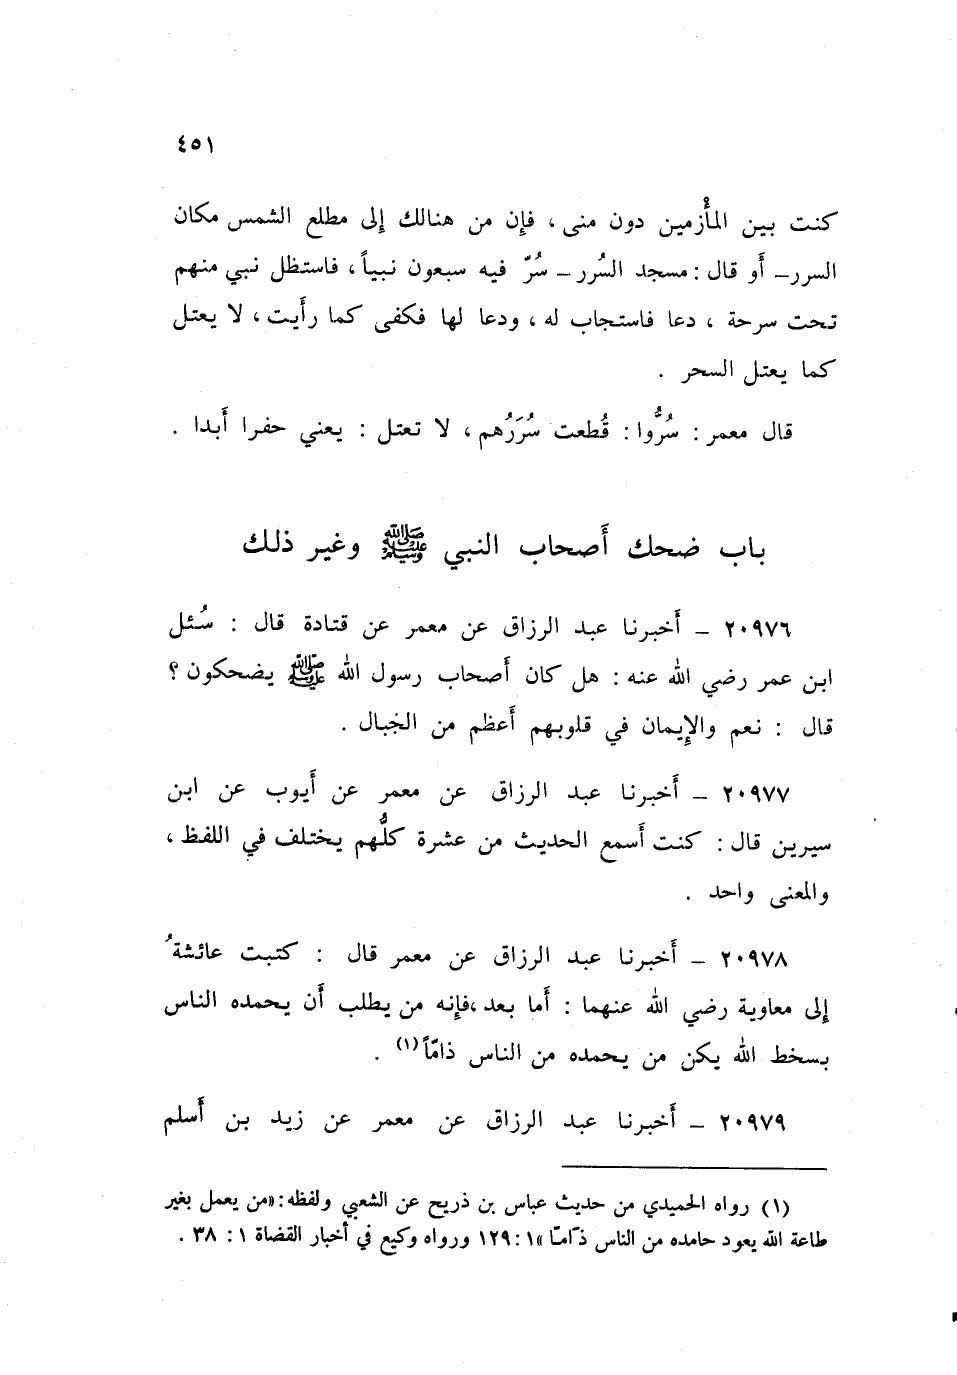 ٤٥١
كنت بين المأْزمين دون منى ، فإن من هنالك إلى مطلع الشمس مكان
السرر ــ أَو قال : مسجد السُرر ــ سُرّ فيه سبعون نبياً ، فاستظل نبي منهم
تحت سرحة ، دعا فاستجاب له ، ودعا لها فكفى كما رأَيت ، لا يعتل
كما يعتل السحر .
قال معمر : سُرُّوا : قُطعت سُرَرُهم ، لا تعتل : يعني حفرا أَبدا .
باب ضحك أَصحاب النبي ﷺ وغير ذلك
٢٠٩٧٦ ــ أَخبرنا عبد الرزاق عن معمر عن قتادة قال : سُئل
ابن عمر رضي الله عنه : هل كان أَصحاب رسول الله ﷺ يضحكون ؟
قال : نعم والإِيمان في قلوبهم أَعظم من الجبال .
٢٠٩٧٧ ــ أَخبرنا عبد الرزاق عن معمر عن أَيوب عن ابن
سيرين قال : كنت أَسمع الحديث من عشرة كلُّهم يختلف في اللفظ ،
والمعنى واحد .
٢٠٩٧٨ ــ أَخبرنا عبد الرزاق عن معمر قال : كتبت عائشةُ
إلى معاوية رضي الله عنهما : أَما بعد ، فإنه من يطلب أَن يحمده الناس
بسخط الله يكن من يحمده من الناس ذامّاً (١) .
٢٠٩٧٩ ــ أَخبرنا عبد الرزاق عن معمر عن زيد بن أَسلم
(١) رواه الحميدي من حديث عباس بن ذريح عن الشعبي ولفظه : «من يعمل بغير
طاعة الله يعود حامده من الناس ذامّا » ١ : ١٢٩ ورواه وكيع في أخبار القضاة ١ : ٣٨ .